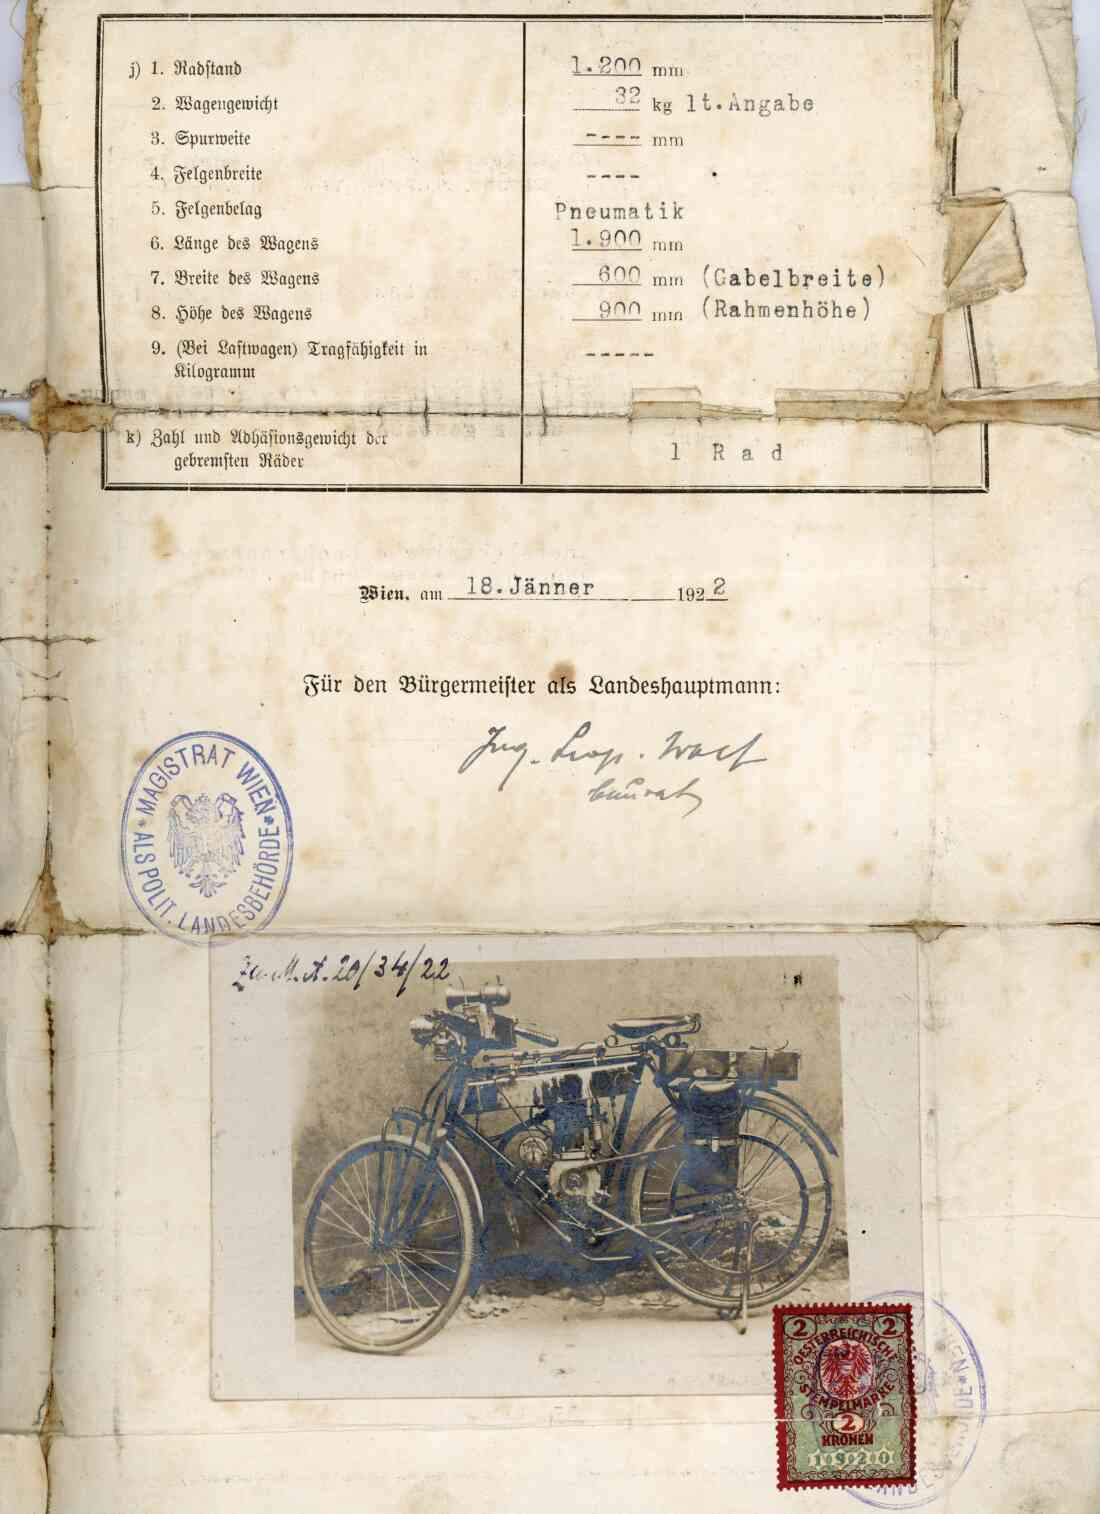 j) 1. Radstand 1.200 mm
2. Wagengewicht 32 kg lt. Angabe
3. Spurweite ---- mm
4. Felgenbreite ----
5. Felgenbelag Pneumatik
6. Länge des Wagens 1.900 mm
7. Breite des Wagens 600 mm (Gabelbreite)
8. Höhe des Wagens 900 mm (Rahmenhöhe)
9. (Bei Lastwagen) Tragfähigkeit in -----
Kilogramm
k) Zahl und Adhäsionsgewicht der
gebremsten Räder 1 Rad
Wien, am 18. Jänner 1922
Für den Bürgermeister als Landeshauptmann:
Ing. Leop. Wolf
Baurat
* MAGISTRAT WIEN *
ALS POLIT. LANDESBEHÖRDE
M.A. 20/34/22
2 2
OESTERREICHISCHE
STEMPELMARKE
2
KRONEN
1920